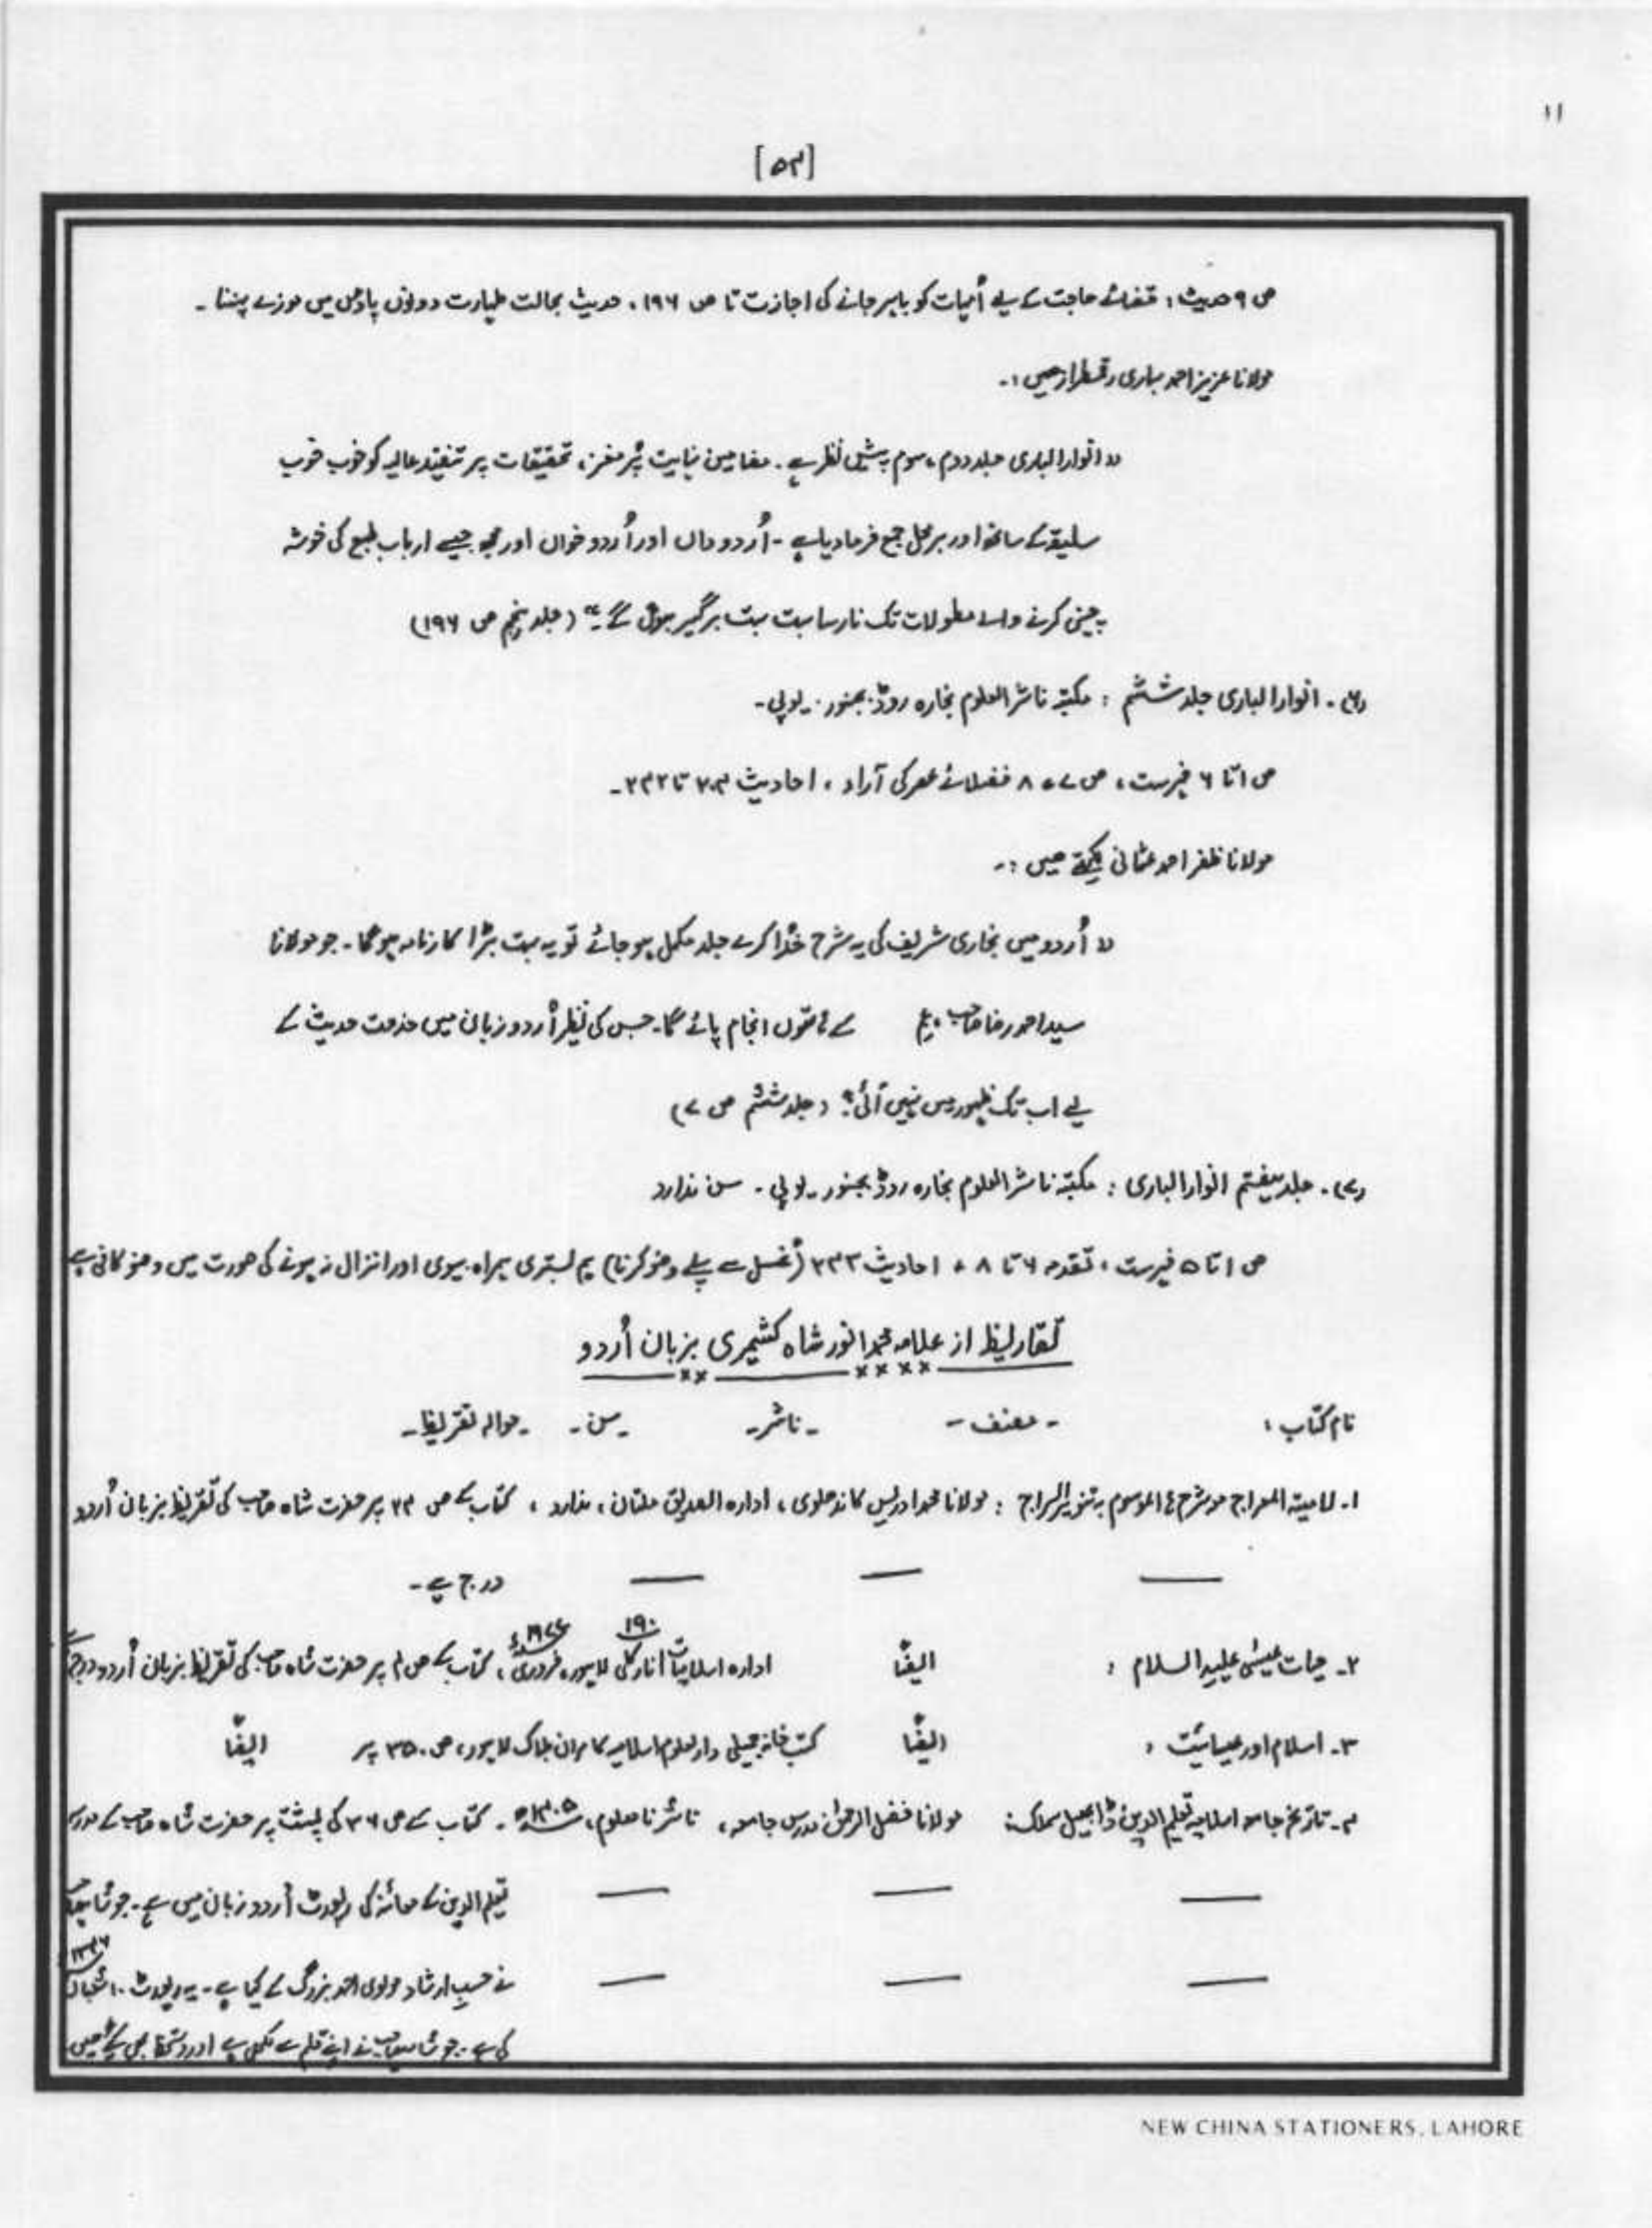 ۱۱
[۵۴]
ص ۹ حدیث: قضائے حاجت کے لیے اُمہات کو باہر جانے کی اجازت تا ص ۱۹۶، حدیث بحالت طہارت دونوں پاؤں میں موزے پہننا۔
مولانا عزیز احمد بہاری رقمطراز ہیں:۔
"انوار الباری جلد دوم، سوم پیش نظر ہے۔ مضامین نہایت پُر مغز، تحقیقات پر تنقید عالیہ کو خوب خوب
سلیقہ کے ساتھ اور برمحل جمع فرمادیا ہے۔ اُردو داں اور اُردو خواں اور مجھ جیسے ارباب طبع کی خوشہ
چینی کرنے والے مطولات تک نارسا بہت بہت برگیر ہوں گے۔" (جلد پنجم ص ۱۹۶)
(۶)۔ انوار الباری جلد ششم : مکتبہ ناشر العلوم بخارہ روڈ بجنور۔ یوپی۔
ص ۱ تا ۶ فہرست، ص ۷، ۸ فضلائے عصر کی آراء، احادیث ۲۰۳ تا ۲۳۲۔
مولانا ظفر احمد عثمانی لکھتے ہیں:۔
"اُردو میں بخاری شریف کی یہ شرح خُدا کرے جلد مکمل ہو جائے تو یہ بہت بڑا کارنامہ ہوگا۔ جو مولانا
سید احمد رضا صاحب کے ہاتھوں انجام پائے گا۔ جس کی نظیر اُردو زبان میں خدمت حدیث کے
لیے اب تک ظہور میں نہیں آئی" (جلد ششم ص ۷)
(۷)۔ جلد ہفتم انوار الباری : مکتبہ ناشر العلوم بخارہ روڈ بجنور۔ یوپی۔ سن ندارد
ص ۱ تا ۵ فہرست، تقدمہ ۶ تا ۸، احادیث ۲۳۳ (غسل سے پہلے وضو کرنا) ہم بستری ہمراہ بیوی اور انزال نہ ہونے کی صورت میں وضو کافی ہے
تقاریظ از علامہ محمد انور شاہ کشمیری بزبان اُردو
نام کتاب : - مصنف - - ناشر - - سن - - حوالہ تقریظ -
۱۔ لامیۃ المعراج مع شرح الموسوم بہ تنویر السراج : مولانا محمد ادریس کاندھلوی، ادارہ الصدیق ملتان، ندارد، کتاب کے ص ۲۴ پر حضرت شاہ صاحب کی تقریظ بزبان اُردو
درج ہے۔
۲۔ حیات عیسٰی علیہ السلام : ایضًا ادارہ اسلامیات ۱۹۰ انارکلی لاہور، فروری ۱۹۷۷ء، کتاب کے ص ۴ پر حضرت شاہ صاحب کی تقریظ بزبان اُردو درج ہے
۳۔ اسلام اور عیسائیت : ایضًا کتب خانہ جمیلی دار العلوم اسلامیہ کامران بلاک لاہور، ص ۳۵۰ پر ایضًا
۴۔ تاریخ جامعہ اسلامیہ تعلیم الدین ڈابھیل سملک : مولانا فضل الرحمٰن مدرس جامعہ، ناشر نامعلوم، ۱۴۰۵ھ۔ کتاب کے ص ۳۶ کی پشت پر حضرت شاہ صاحب کے مدرسہ
تعلیم الدین کے معائنہ کی رپورٹ اُردو زبان میں ہے۔ جو
نے حسبِ ارشاد مولوی احمد بزرگ کے کیا ہے۔ یہ رپورٹ ۱۰ شعبان
کی ہے۔ جو نے اپنے قلم سے لکھی ہے اور دستخط بھی کیے ہیں
NEW CHINA STATIONERS, LAHORE